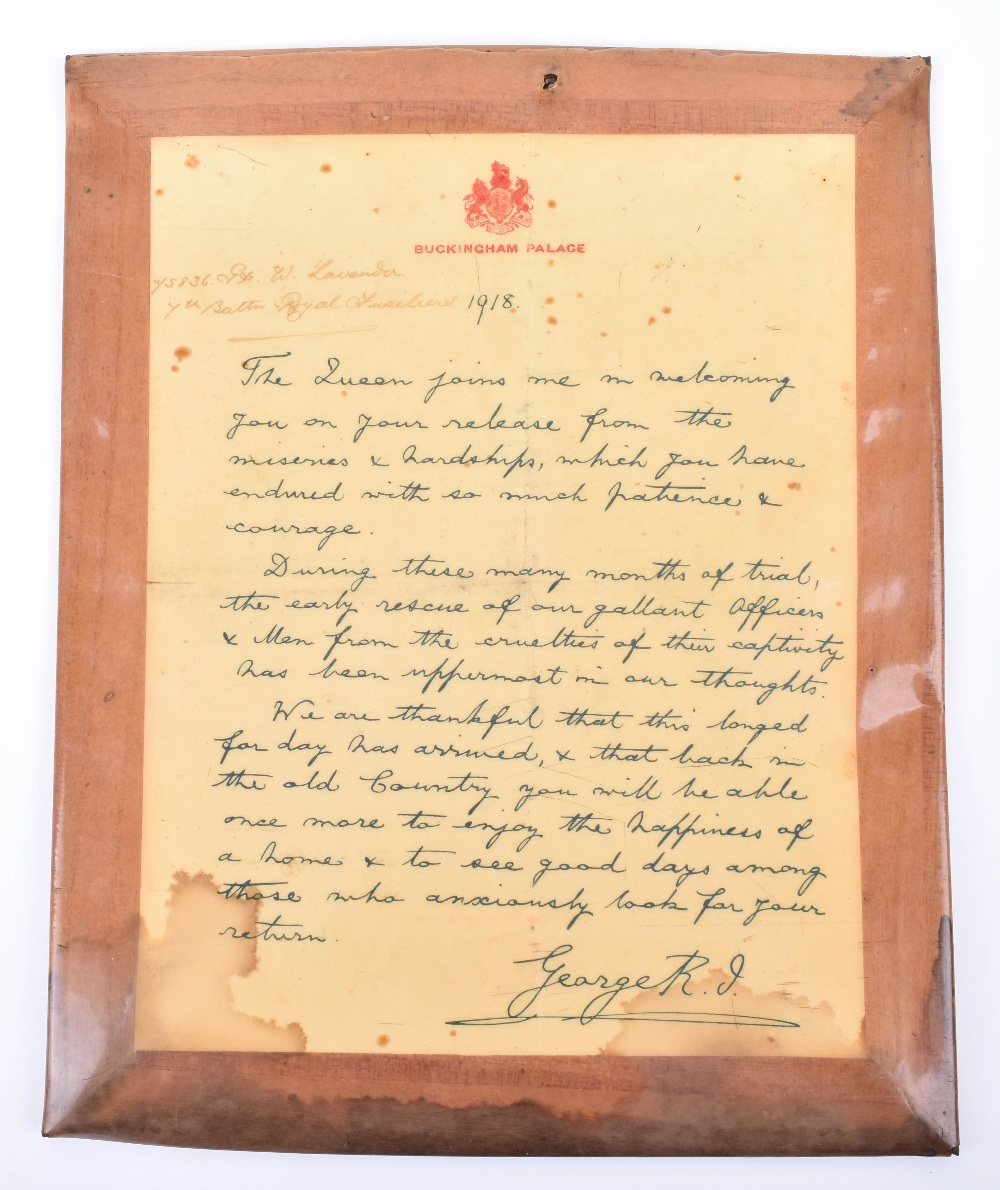 BUCKINGHAM PALACE
75836. Pte. W. Lavender.
7th Battn Royal Fusiliers
1918.
The Queen joins me in welcoming
you on your release from the
miseries & hardships, which you have
endured with so much patience &
courage.
During these many months of trial,
the early rescue of our gallant Officers
& Men from the cruelties of their captivity
has been uppermost in our thoughts.
We are thankful that this longed
for day has arrived, & that back in
the old Country you will be able
once more to enjoy the happiness of
a home & to see good days among
those who anxiously look for your
return.
George R.I.